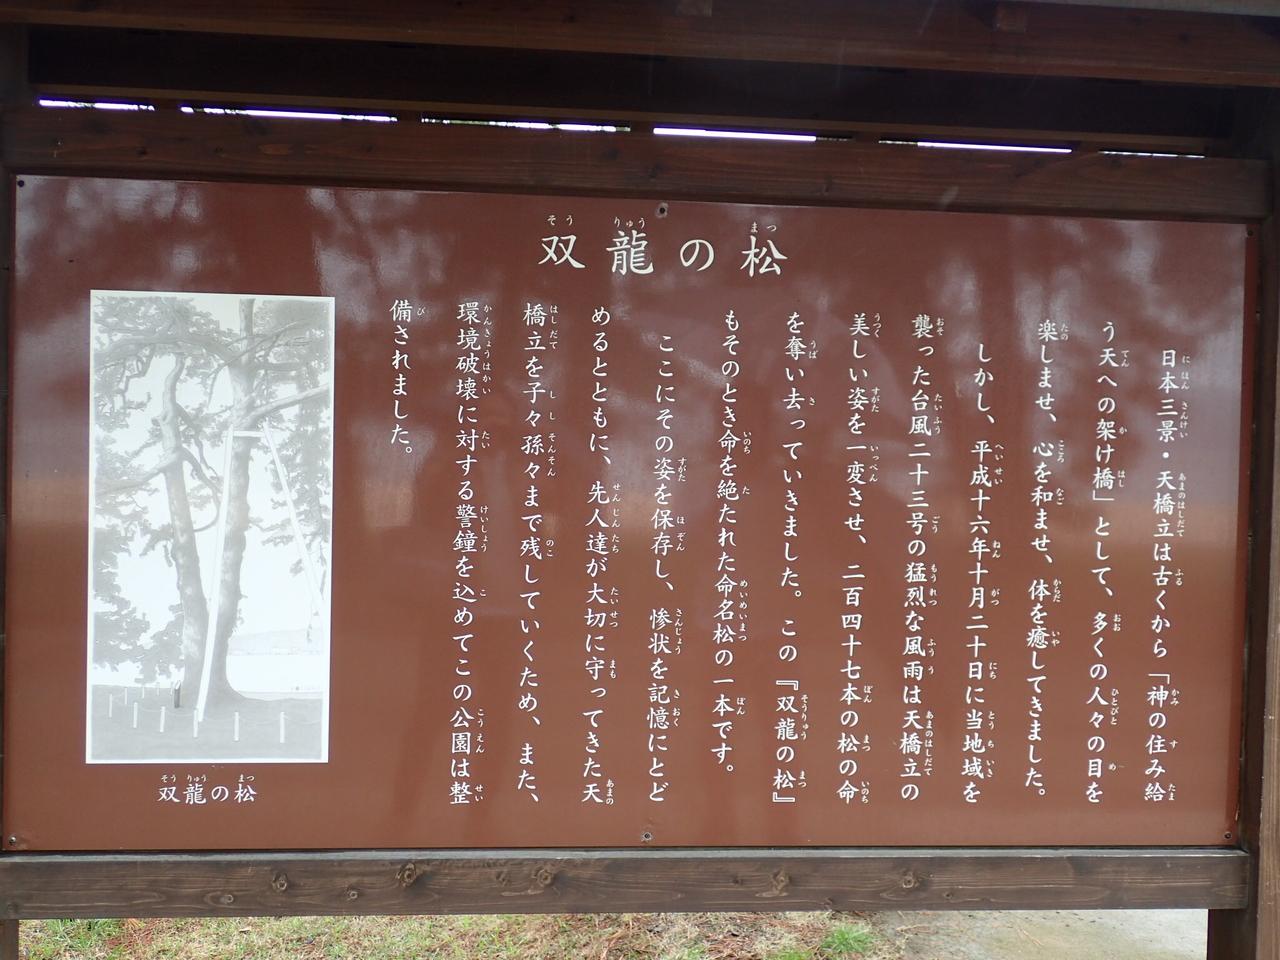 双龍の松
日本三景・天橋立は古くから「神の住み給
う天への架け橋」として、多くの人々の目を
楽しませ、心を和ませ、体を癒してきました。
しかし、平成十六年十月二十日に当地域を
襲った台風二十三号の猛烈な風雨は天橋立の
美しい姿を一変させ、二百四十七本の松の命
を奪い去っていきました。この『双龍の松』
もそのとき命を絶たれた命名松の一本です。
ここにその姿を保存し、惨状を記憶にとど
めるとともに、先人達が大切に守ってきた天
橋立を子々孫々まで残していくため、また、
環境破壊に対する警鐘を込めてこの公園は整
備されました。
双龍の松